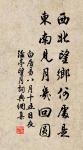 西北望鄉何處是
東南見月幾回圓
白居易八月十五日夜
湓亭望月詞典網集